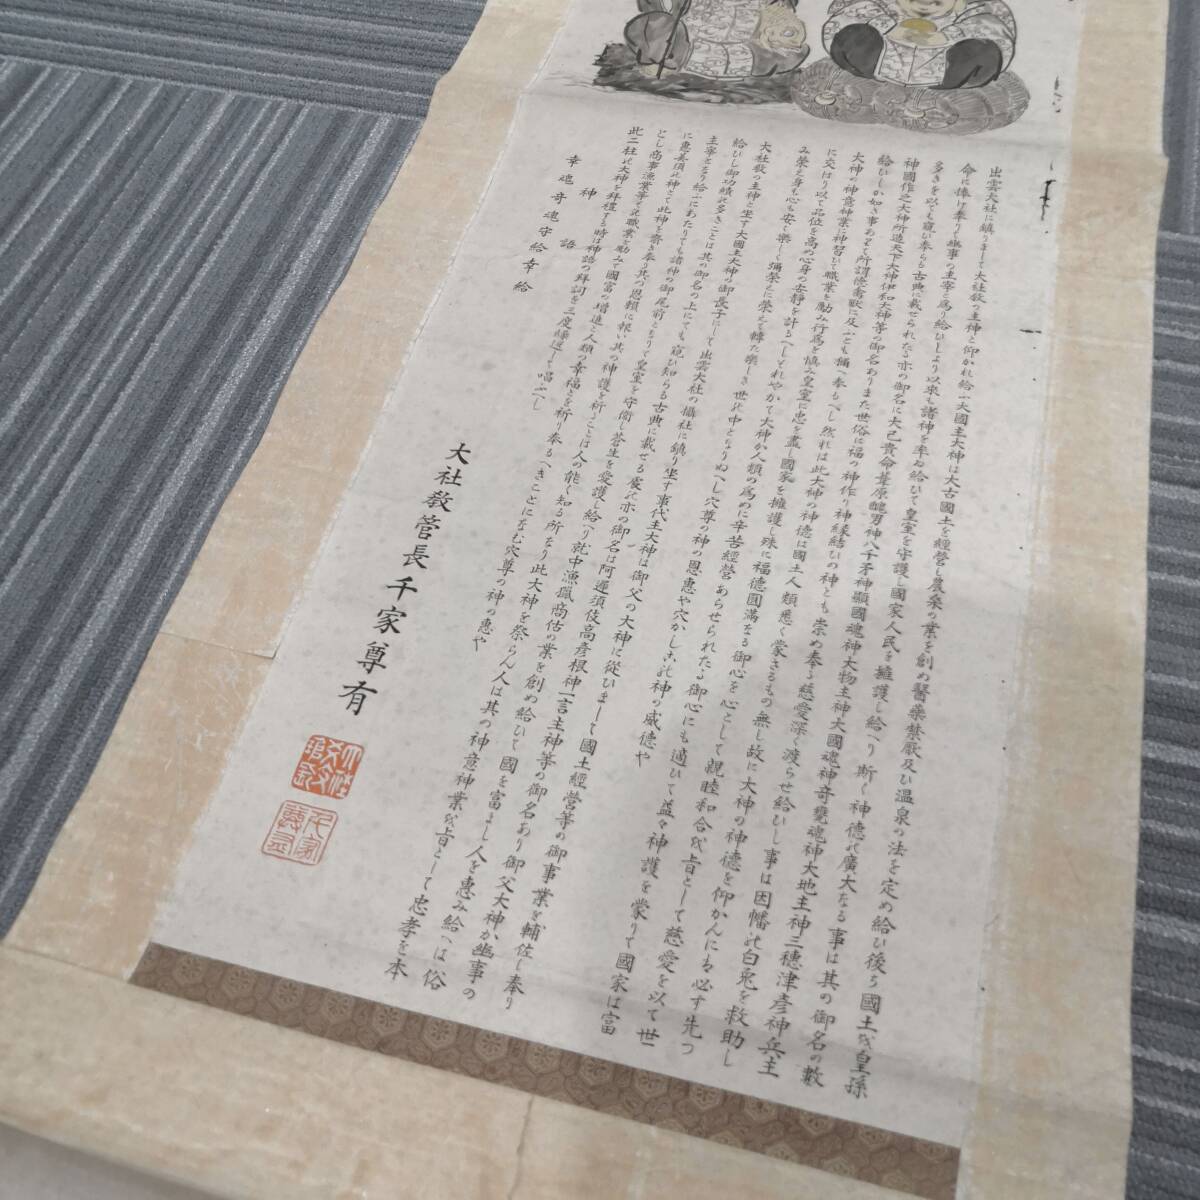 出雲大社に鎮りまして大社教の主神と仰かれ給ふ大國主大神は大古國土を經營し農桑の業を創め醫藥禁厭及ひ温泉の法を定め給ひ後ち國土を皇孫
命に捧け奉りて幽事の主宰と為り給ひしより以來も諸神を率ゐ給ひて皇室を守護し國家人民を擁護し給へり斯く神德の廣大なる事は其の御名の數
多きを以ても窺ひ奉らる古典に載せられたる亦の御名に大己貴命葦原醜男神八千矛神顯國魂神大物主神大國魂神奇甕魂神大地主神三穗津彦神兵主
神國作之大神所造天下大神伊和大神等の御名ありまた世俗に福の神作り神縁結ひの神とも崇め奉る慈愛深く渡らせ給ひし事は因幡の白兎を救助し
給ひしか如き事ありて所謂德禽獸に及ふとも稱へ奉るへし然れは此大神の神德は國土人類悉く蒙さるもの無し故に大神の神德を仰かんには必す先つ
大神の神意神業に神習ひて職業を勵み行爲を慎み皇室に忠を盡し國家を擁護し殊に福德圓滿なる御心を心として親睦和合を旨として慈愛を以て世
に交はり以て品位を高め心身の安靜を計るへしそれやかて大神か人類の爲めに辛苦經營あらせられたる御心にも適ひて益々神護を蒙りて國家は富
み榮え身も心も安く樂しく彌榮えに榮えて轉た樂しき世の中となりぬへし穴尊の神の恩惠や穴かしこの神の威德や
大社教の主神と坐す大國主大神の御長子にして出雲大社の攝社に鎮り坐す事代主大神は御父の大神に從ひまして國土經營等の御事業を輔佐し奉り
給ひし御功績の多きことは其の御名の上にても窺ひ知らる古典に載せる處の亦の御名は阿遲須伎高彦根神一言主神等の御名あり御父大神か幽事の
主宰となり給ふにあたりても諸神の御尾前となりて皇室を守衞し蒼生を愛護し給へり就中漁獵商估の業を創め給ひて國を富まし人を惠み給へは俗
に惠美須の神とて此神を齋き奉り其の恩賴に報い其の神護を祈ることは人の能く知る所なり此大神を祭らん人は其の神意神業を旨として忠孝を本
とし商事漁業等の職業を勵みて國富の增進と人類の幸福とを祈り奉るへきことになむ穴尊の神の惠や
此二柱の大神を拜禮する時は神語の拜詞を三度繰返して唱ふへし
神語
幸魂奇魂守給幸給
大社教管長千家尊有